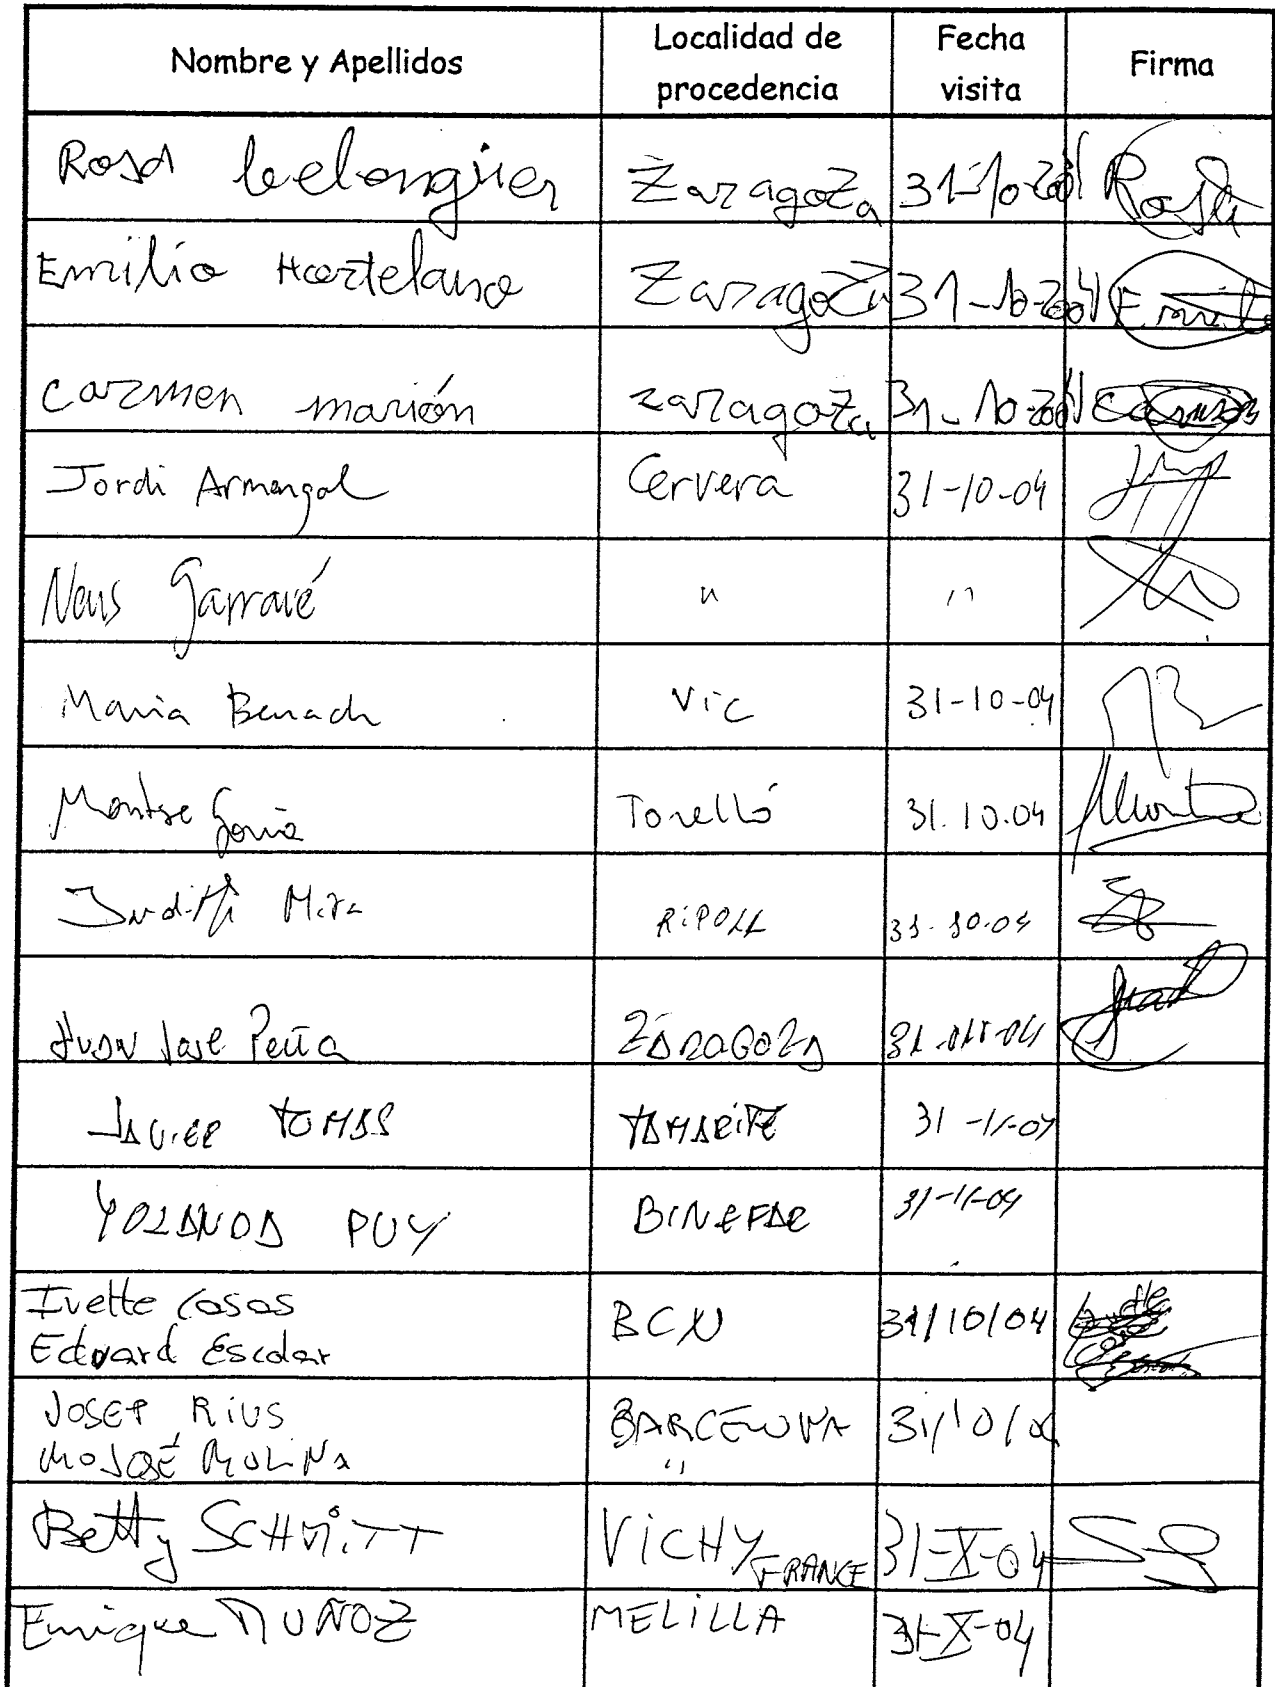 Nombre y Apellidos Localidad de procedencia Fecha visita Firma
Rosa belenguer Zaragoza 31-10-2004 Rosa
Emilio Hortelano Zaragoza 31-10-2004 Emilio
carmen marión zaragoza 31-10-2004 carmen
Jordi Armengol Cervera 31-10-04
Neus Garravé " "
Maria Benach Vic 31-10-04
Montse Soria Torelló 31.10.04 Montse
Judith Mira RIPOLL 31-10-04
Juan José Peña ZARAGOZA 31
JAVIER TOMAS TAMARITE 31-11-04
YOLANDA PUY BINEFAR 31-11-04
Ivette Casas BCN 31/10/04
Edward Escolar
JOSEP RIUS BARCELONA 31/10/04
Mº JOSÉ MOLINA "
Betty SCHMITT VICHY FRANCE 31-X-04
Enrique MUÑOZ MELILLA 31-X-04